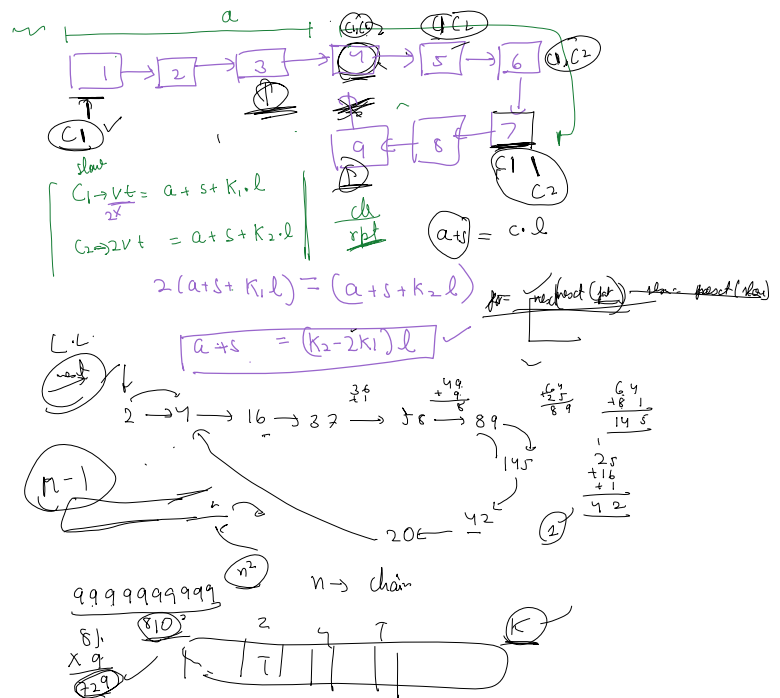 a
C1, C2
C1 C2
1 → 2 → 3 → 4 → 5 → 6
C1, C2
9 8 7
C1 ✓
C1
C2
slow
C1 → vt = a + s + K1 · l
2x
C2 → 2vt = a + s + K2 · l
rpt
a+s = c · l
2(a+s+ K1 l) = (a+s+K2 l)
a+s = (K2-2K1) l
L.L
next
2 → 4 → 16 → 37 → 58 → 89
36
+1
49
+9
8
64
+25
89
64
+81
145
145
25
+16
+1
42
20 ← 42
1
n-1
n²
n → chain
9999999999
810
81
× 9
729
2 4 7
T
K